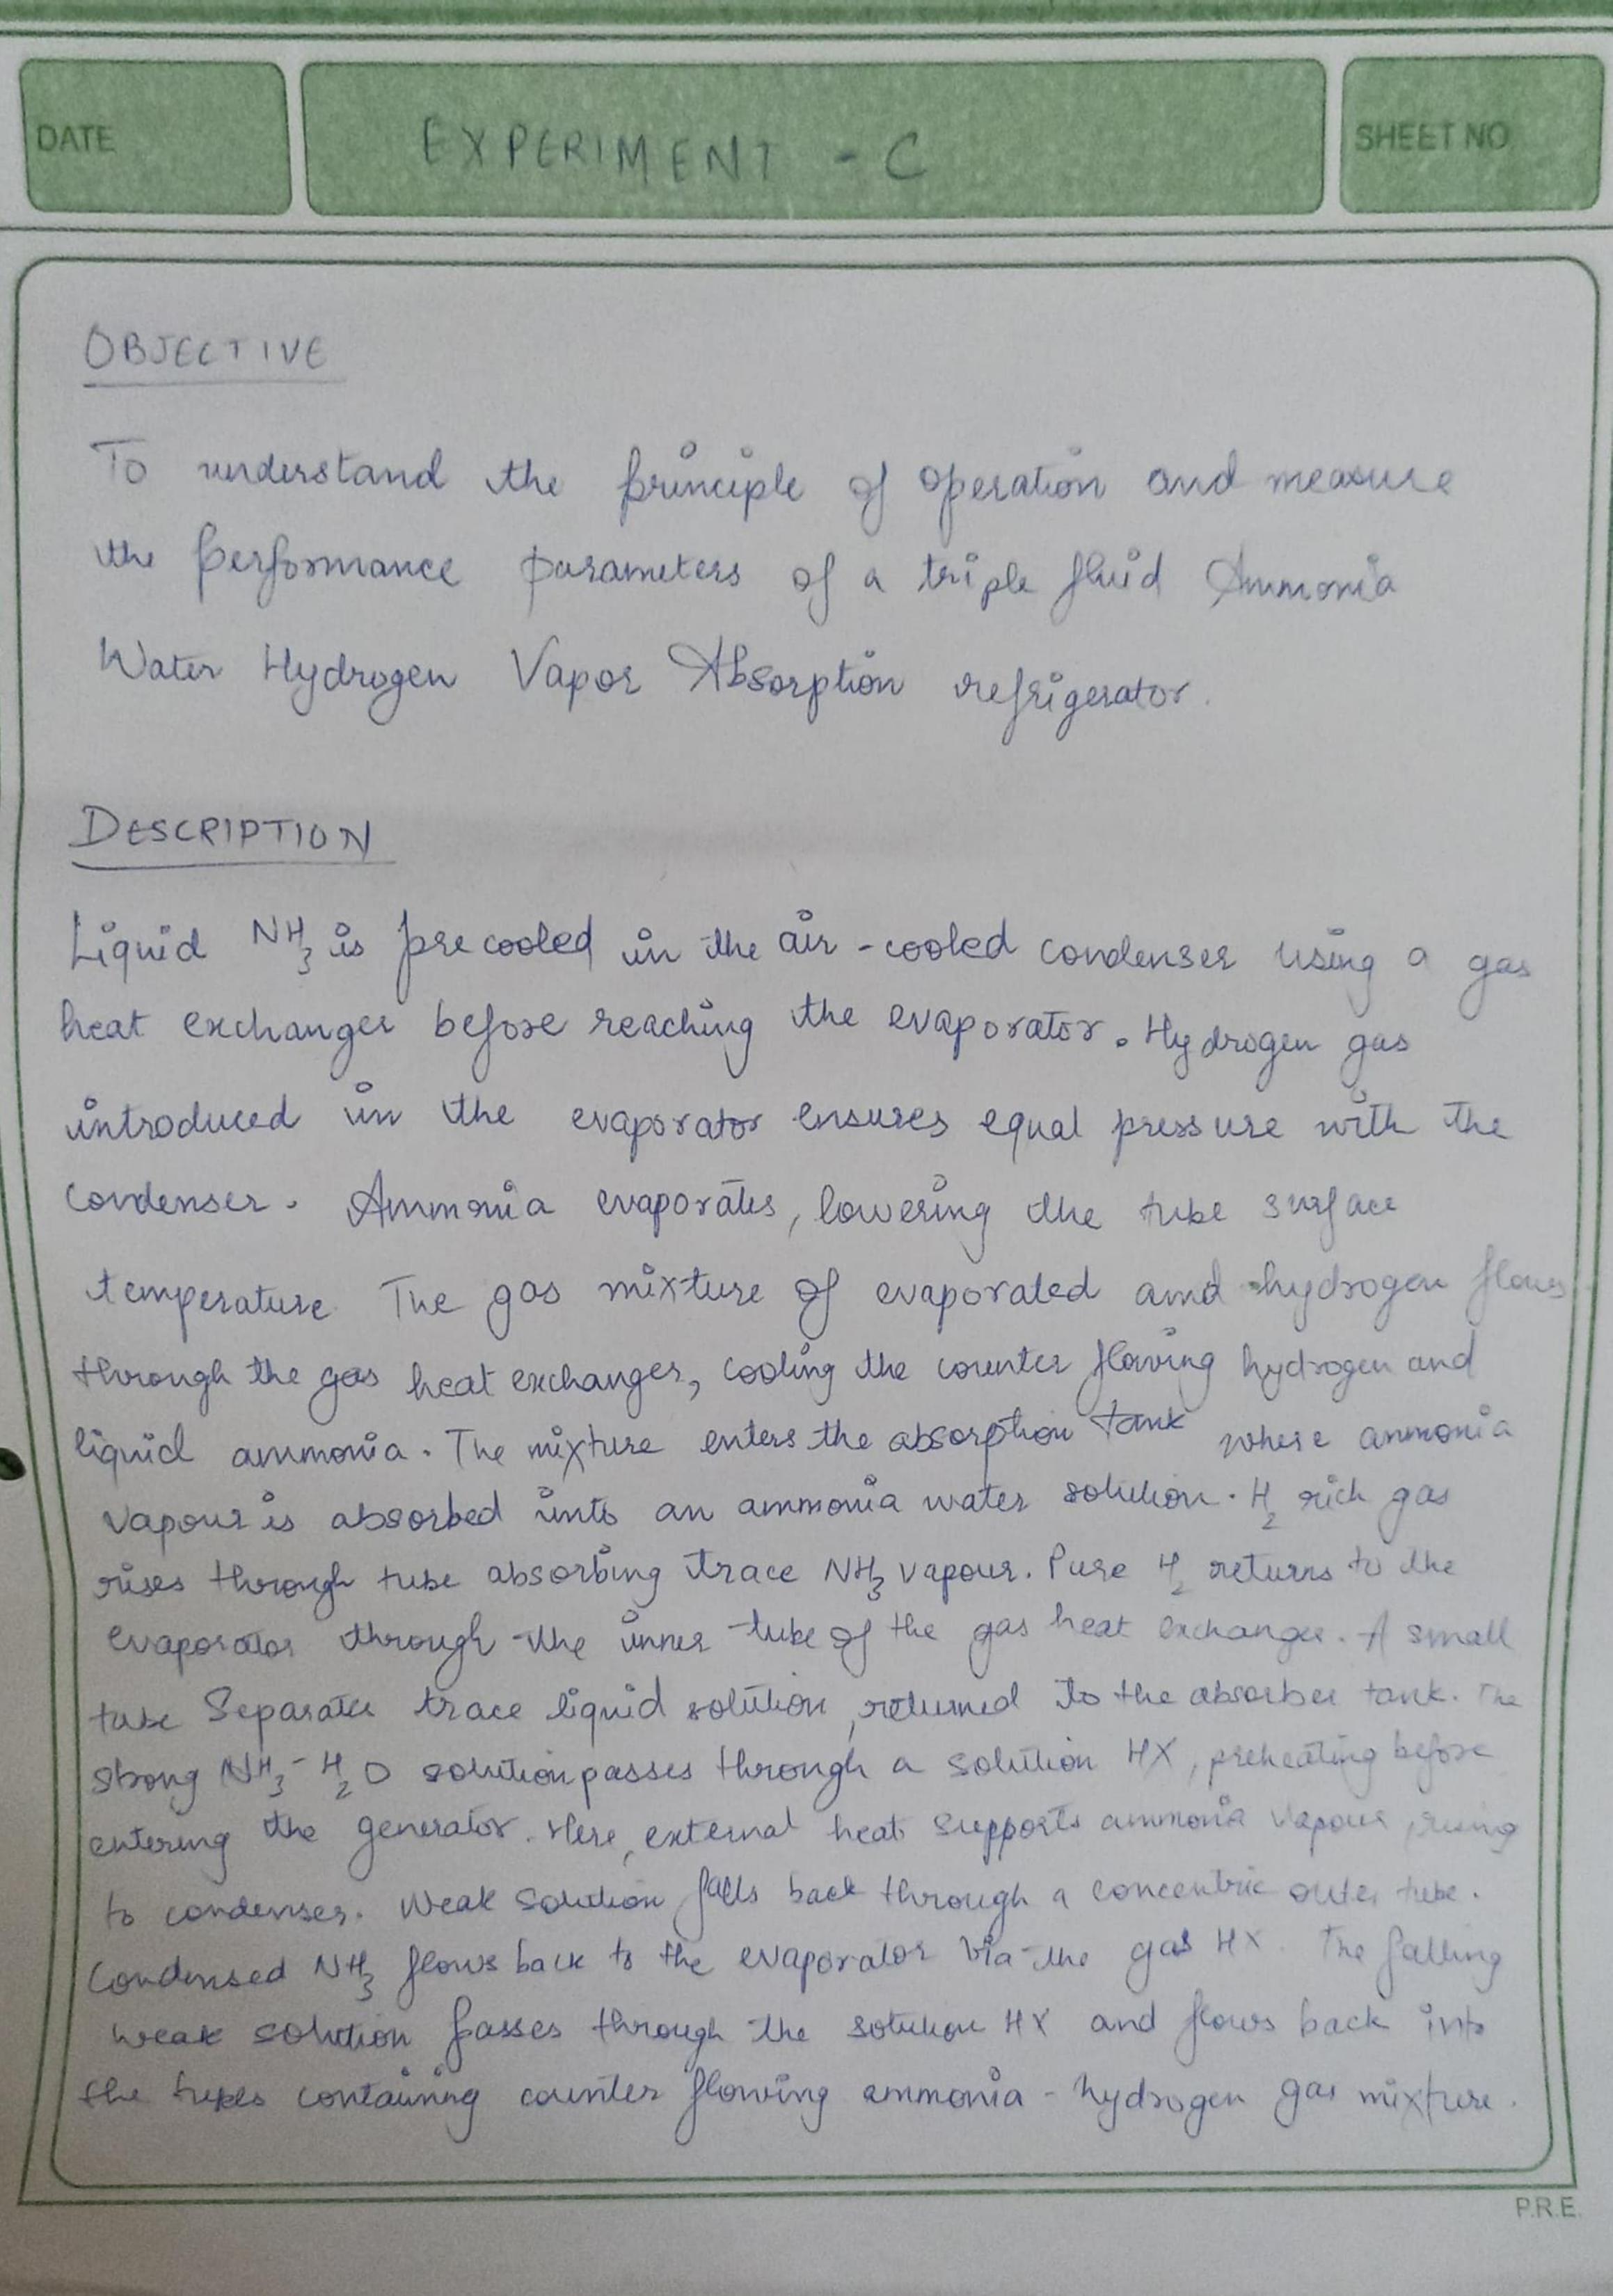 DATE
EXPERIMENT - C
SHEET NO
OBJECTIVE
To understand the principle of operation and measure
the performance parameters of a triple fluid Ammonia
Water Hydrogen Vapor Absorption refrigerator.
DESCRIPTION
Liquid NH3 is precooled in the air-cooled condenser using a gas
heat exchanger before reaching the evaporator. Hydrogen gas
introduced in the evaporator ensures equal pressure with the
condenser. Ammonia evaporates, lowering the tube surface
temperature. The gas mixture of evaporated amd hydrogen flows
through the gas heat exchanger, cooling the counter flowing hydrogen and
liquid ammonia. The mixture enters the absorption tank where ammonia
vapour is absorbed into an ammonia water solution. H2 rich gas
rises through tube absorbing trace NH3 vapour. Pure H2 returns to the
evaporator through the inner tube of the gas heat exchanger. A small
tube separates trace liquid solution, returned to the absorber tank. The
strong NH3-H2O solution passes through a solution HX, preheating before
entering the generator. Here, external heat supports ammonia vapour, rising
to condenser. Weak solution falls back through a concentric outer tube.
Condensed NH3 flows back to the evaporator via the gas HX. The falling
weak solution passes through the solution HX and flows back into
the tubes containing counter flowing ammonia-hydrogen gas mixture.
P.R.E.